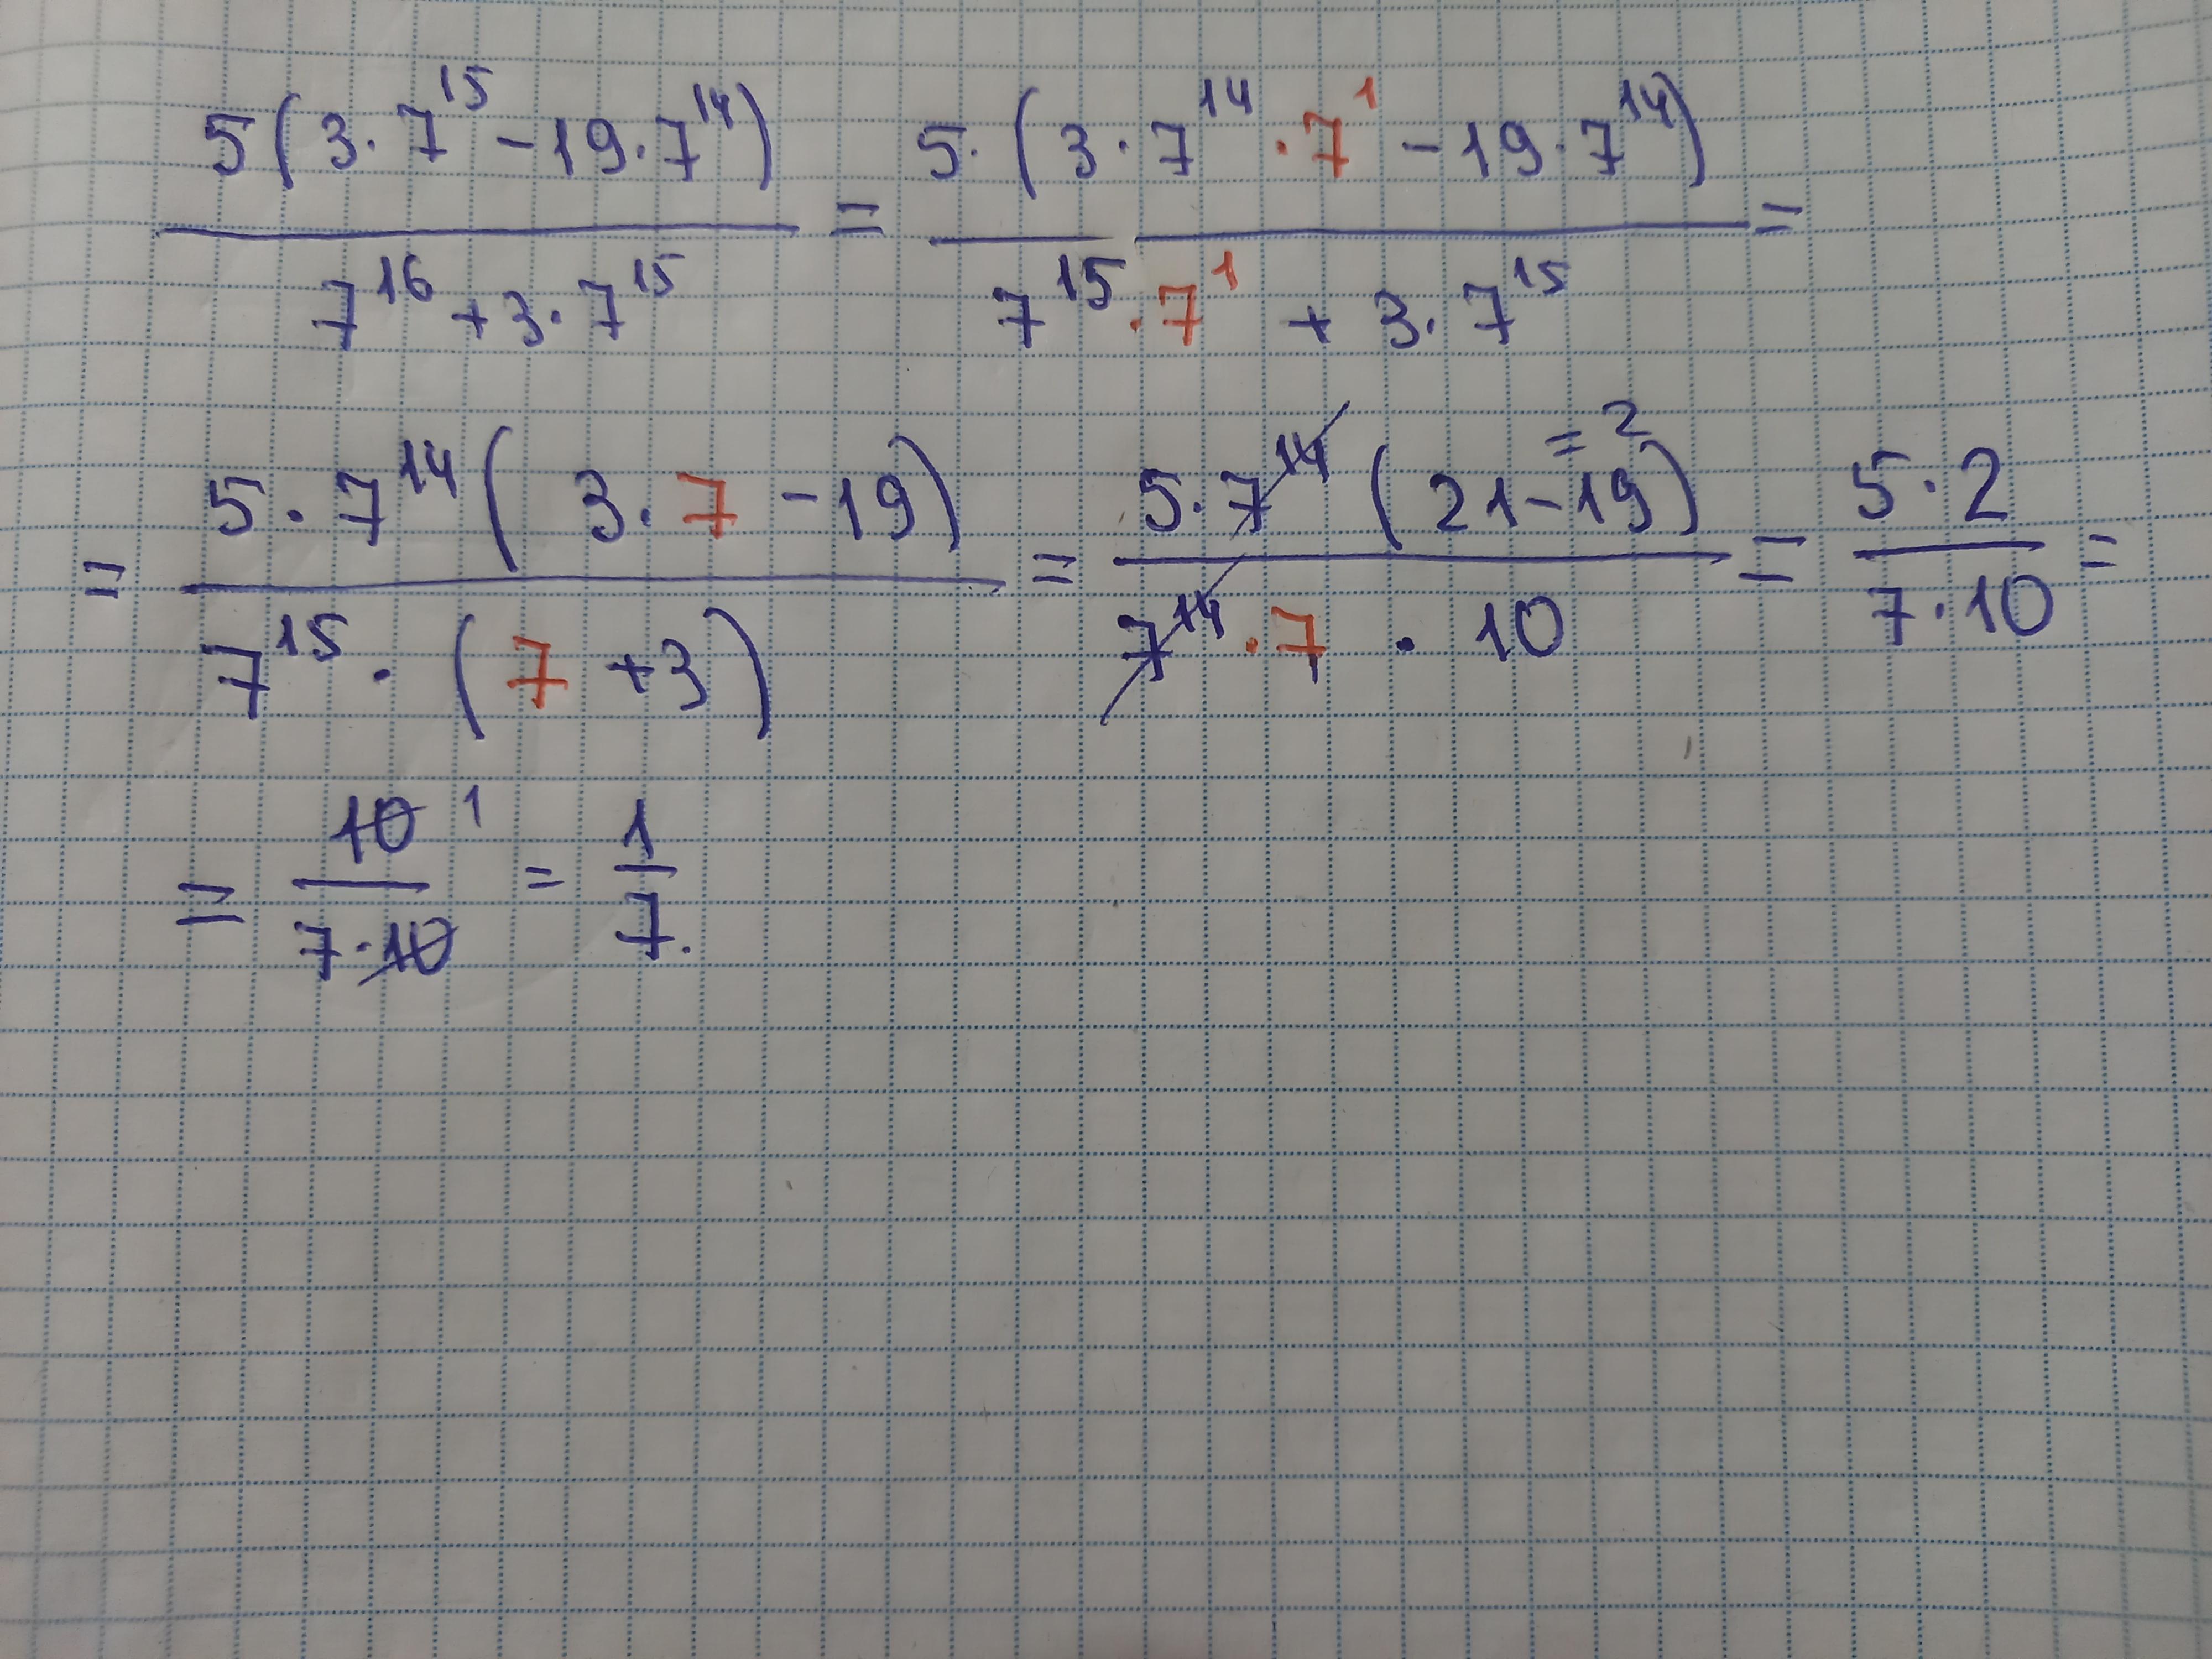 5(3·7^15 − 19·7^14) / (7^16 + 3·7^15) = 5·(3·7^14·7^1 − 19·7^14) / (7^15·7^1 + 3·7^15) =
= 5·7^14(3·7 − 19) / (7^15·(7 + 3)) = 5·7^14(21 − 19) = 2 / (7^14·7·10) = 5·2 / (7·10) =
= 10 1 / (7·10) = 1/7.